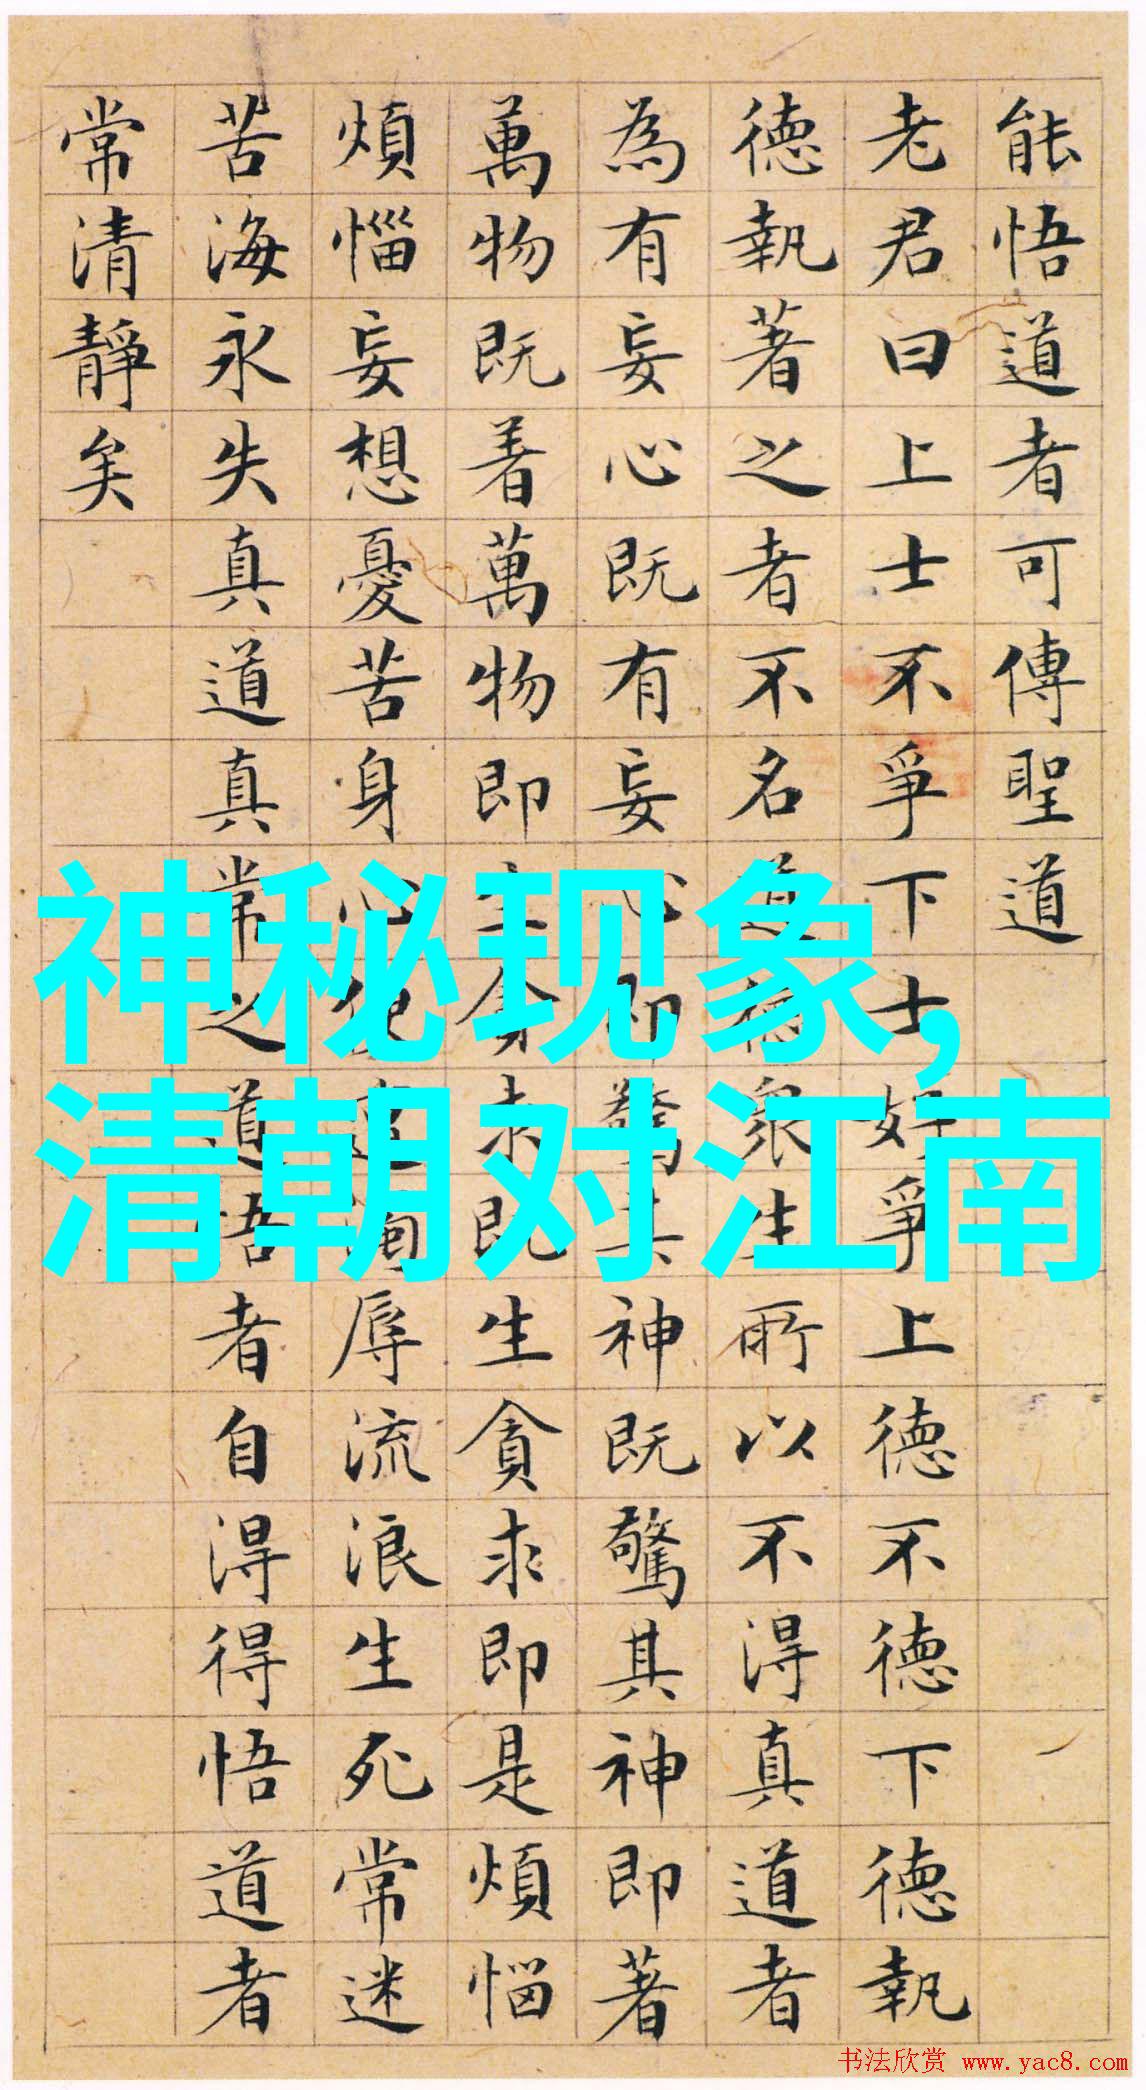 能悟道者可傳聖道
老君曰上士不爭下士好爭上德不德下德執
德執著之者不名道德衆生所以不得真道者
為有妄心既有妄心即驚其神既驚其神即著
萬物既着萬物即生貪求既生貪求即是煩惱
煩惱妄想憂苦身心便遭濁辱流浪生死常迷
苦海永失真道真常之道悟者自得得悟道者
常清靜矣
神秘现象,
清朝对江南
书法欣赏 www.yac8.com